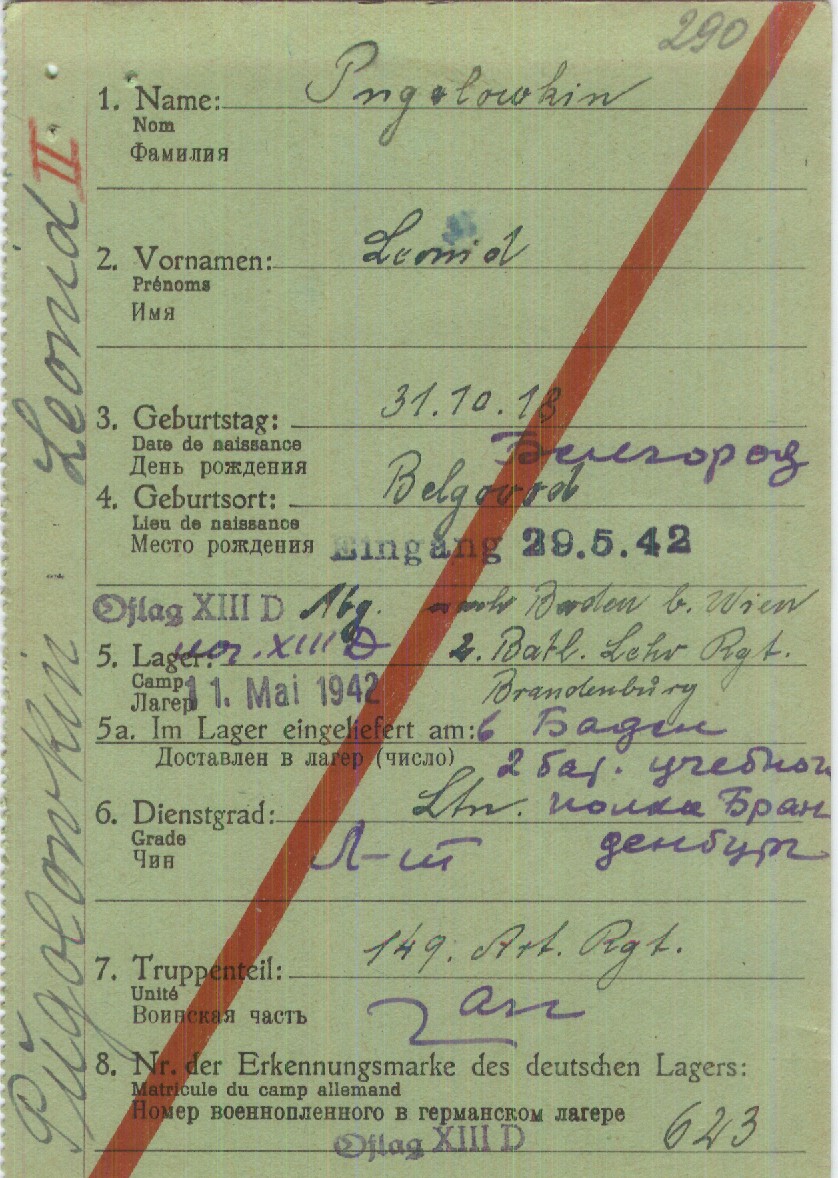 290
1. Name: Pugolowkin
Nom
Фамилия
2. Vornamen: Leonid
Prénoms
Имя
3. Geburtstag: 31.10.18
Date de naissance
День рождения
Белгород
4. Geburtsort: Belgorod
Lieu de naissance
Место рождения
Eingang 29.5.42
Oflag XIII D Abg. nach Baden b. Wien
5. Lager: XIII D 2. Batl. Lehr Rgt.
Camp
Лагер
11. Mai 1942 Brandenburg
5a. Im Lager eingeliefert am: в Баден
Доставлен в лагер (число) 2 бат. учебного
6. Dienstgrad: Ltn. полка Бран
Grade
Чин
Л-т денбург
7. Truppenteil: 149. Art. Rgt.
Unité
Воинская часть
8. Nr. der Erkennungsmarke des deutschen Lagers:
Matricule du camp allemand
Номер военнопленного в германском лагере
Oflag XIII D 623
Pŭgolowkin Leonid II